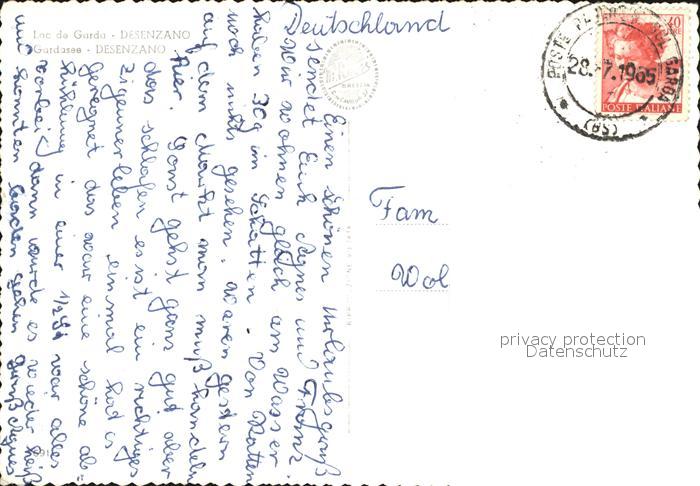 Lac de Garda - DESENZANO
Gardasee - DESENZANO
Deutschland
Einen schönen Urlaubsgruß
sendet Euch Agnes und Franz.
Wir wohnen gleich am Wasser
haben 30g im Schatten. Von Ratten
noch nichts gesehen, waren gestern
auf dem Markt man muß handeln
hier. Sonst gehts ganz gut aber
das schlafen es ist ein richtiges
Zigeunerleben einmal hat is
geregnet das war eine schöne ab-
kühlung in einer 1/2 Std war alles
vorbei, dann wurde es wieder heiß
und konnten baden gehen Gruß Agnes
Fam
Wol
POSTE
GARDA
(BS)
28.-7.1965
40
POSTE ITALIANE
privacy protection
Datenschutz